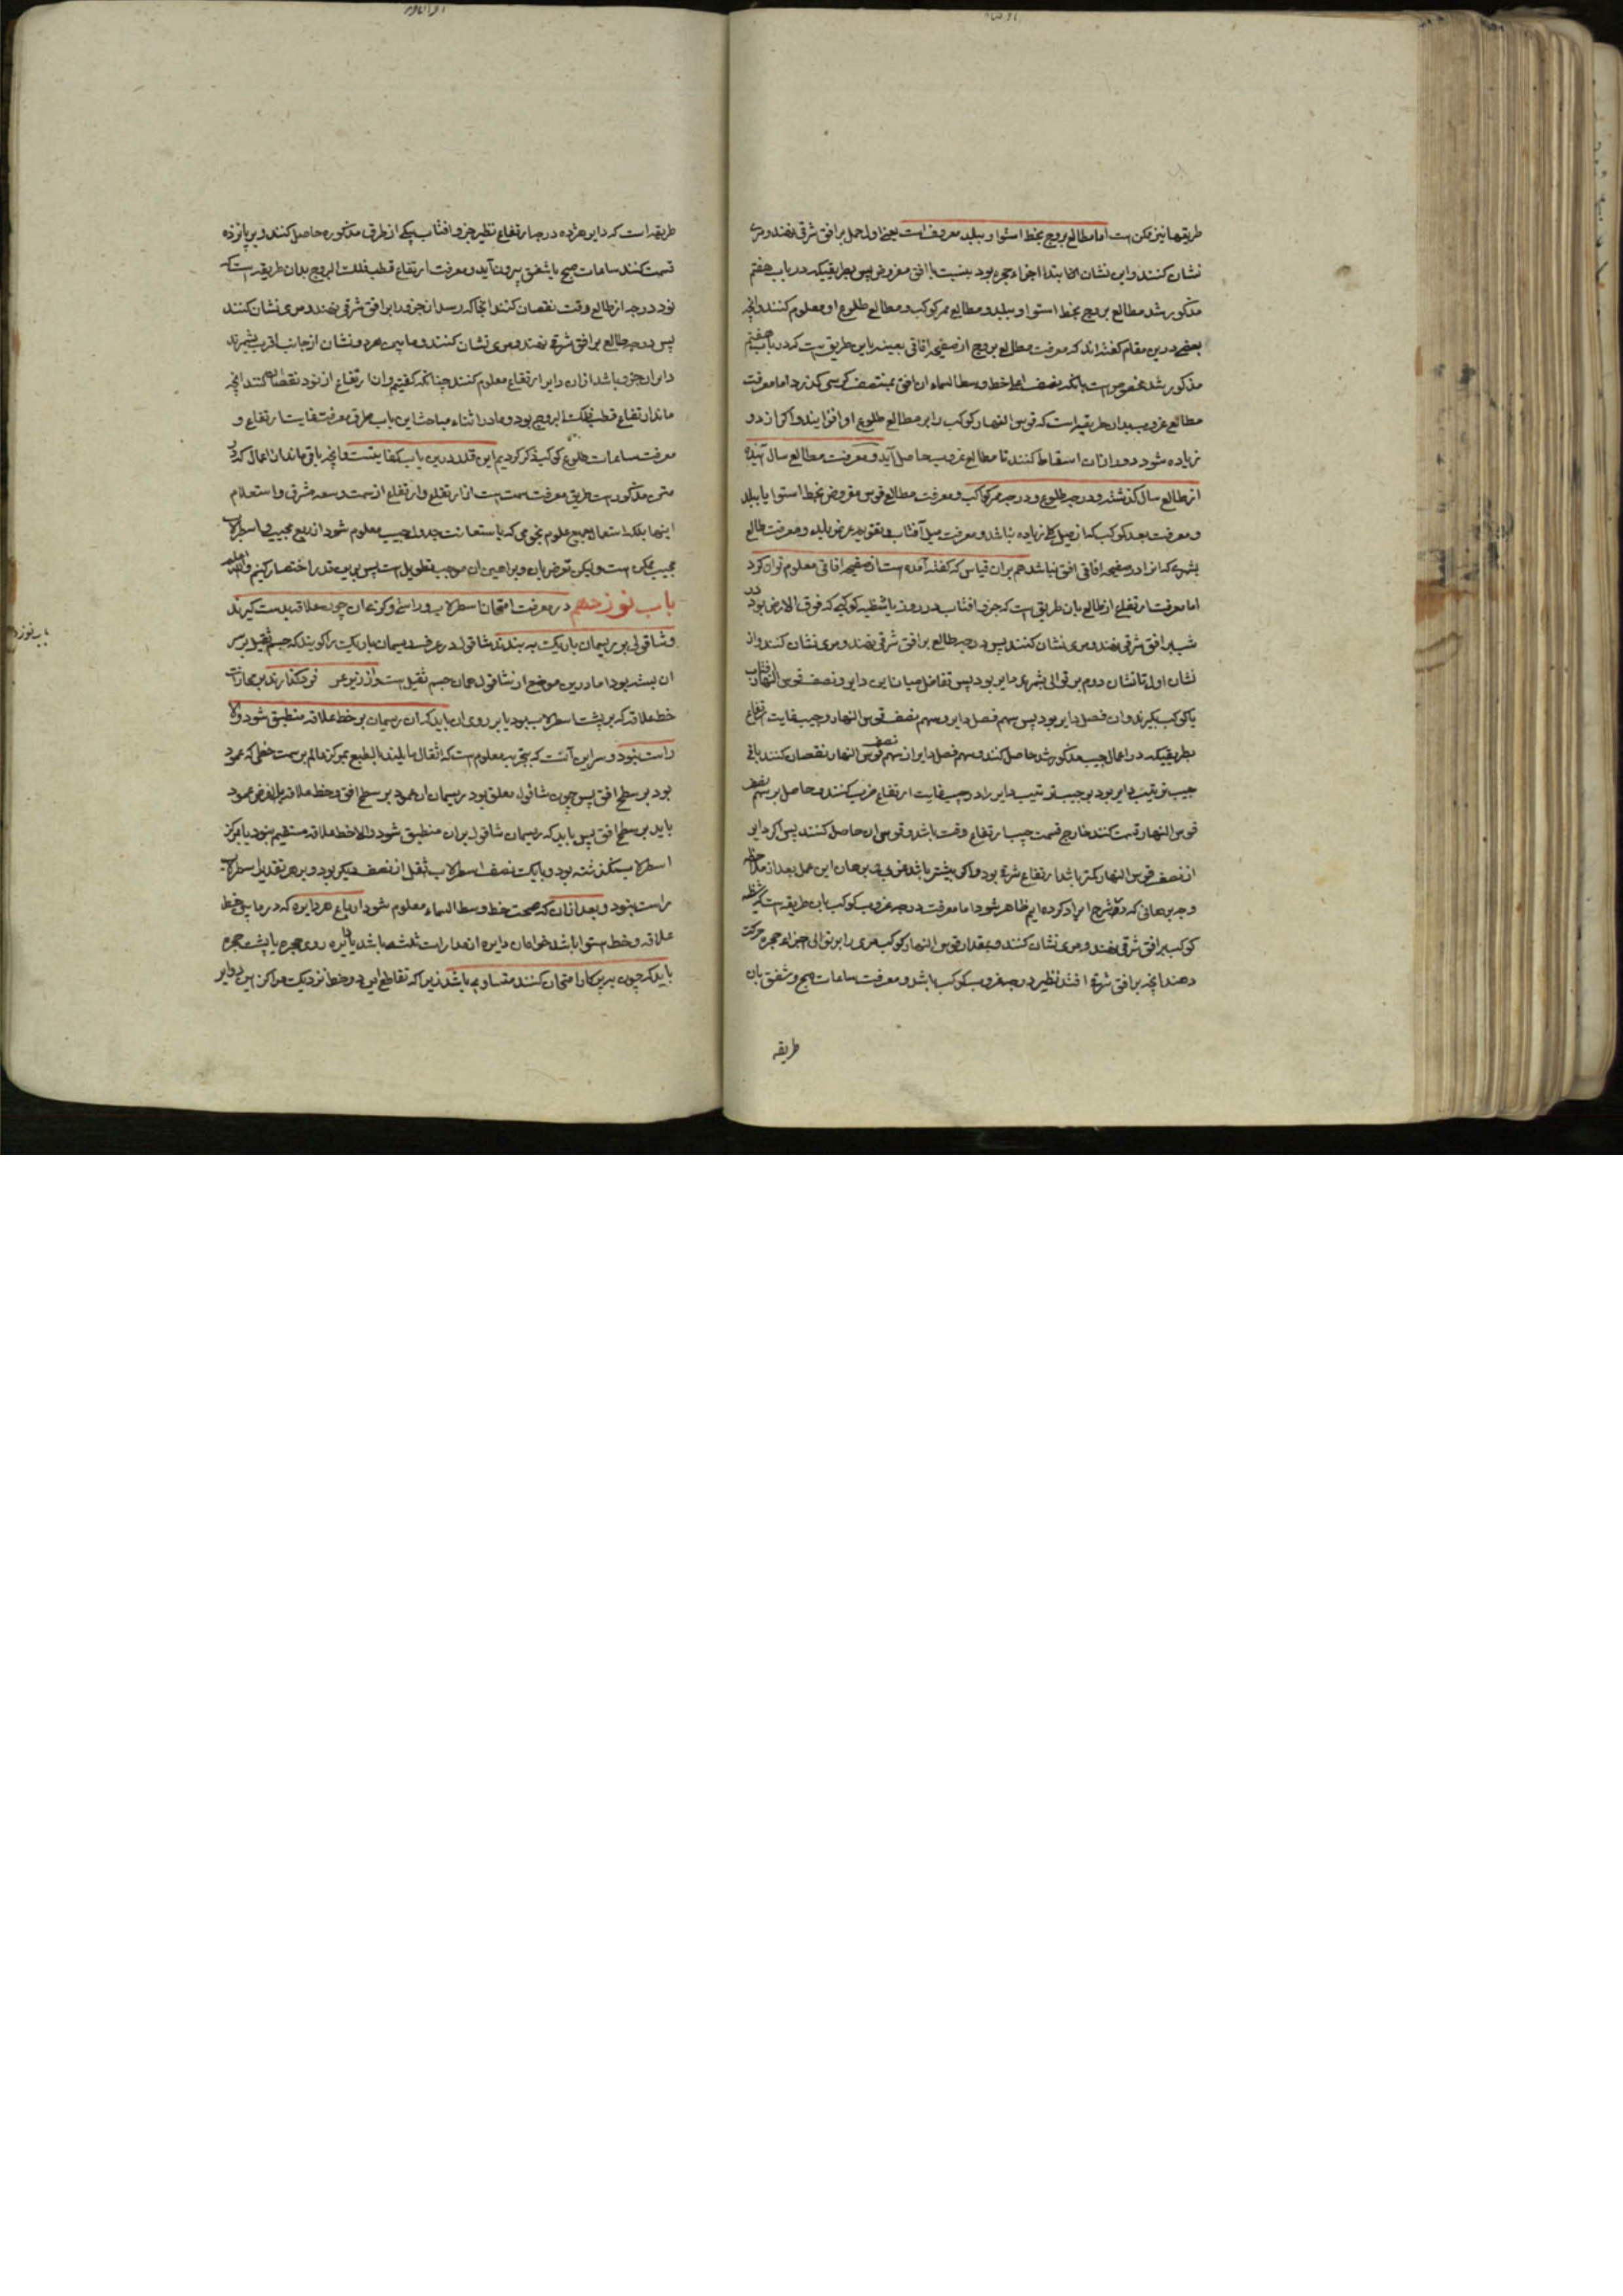 طریقها نیز ممکن است اما مطالع بروج بخط استوا و ببلد معروف است یعنی اول حمل بر افق شرقی نهند و مری
نشان کنند و این نشان انجا ابتداء اجزاء حجره بود بنسبت با افق مفروض پس بطریقیکه در باب هفتم
مذکور شد مطالع بروج بخط استوا و ببلد و مطالع ممر کوکب و مطالع طلوع او معلوم کنند وانچه
بعضی درین مقام گفته اند که معرفت مطالع بروج از صفیحه افاقی بعینه باین طریق است که در باب هفتم
مذکور شد مخصوص است بانکه نصف اعلی خط وسط السماء ان افق بمنتصف کرسی گذرد اما معرفت
مطالع غروب بدان طریقه است که قوس النهار کوکب را بر مطالع طلوع او افزایند و اگر از دور
زیاده شود دور ازان اسقاط کنند تا مطالع غروب حاصل آید و معرفت مطالع سال آینده
از طالع سال گذشته و درجه طلوع و درجه ممر کواکب و معرفت مطالع قوس مفروض بخط استوا یا ببلد
و معرفت بعد کوکب که از میل کلی زیاده نباشد و معرفت میل آفتاب و تقویم و عرض بلد و معرفت طالع
بشهری که انرا در صفیحه افاقی افق نباشد هم بران قیاس که گفته آمده است از صفیحه افاقی معلوم توان کرد
اما معرفت ارتفاع از طالع بان طریق است که جزء افتاب در روز یا شظیه کوکبی که فوق الارض بود در
شب بر افق شرقی نهند و مری نشان کنند پس درجه طالع بر افق شرقی نهند و مری نشان کنند و از
نشان اول تا نشان دوم بر توالی بشمرند دایر بود پس تفاضل میان این دایر و نصف قوس النهار افتاب
یا کوکب بگیرند و ان فضل دایر بود پس سهم فضل دایر و سهم نصف قوس النهار و جیب غایت ارتفاع
بطریقیکه در اعمال جیب مذکور شد حاصل کنند و سهم فضل دایر از سهم نصف قوس النهار نقصان کنند باقی
جیب ترتیب دایر بود جیب ترتیب دایر را در جیب غایت ارتفاع ضرب کنند و حاصل بر سهم نصف
قوس النهار قسمت کنند خارج قسمت جیب ارتفاع وقت باشد و قوس ان حاصل کنند پس اگر دایر
از نصف قوس النهار کمتر باشد ارتفاع شرقی بود و اگر بیشتر باشد غربی و برهان این عمل بعد از ملاحظه
وجه برهانی که در شرح ایراد کرده ایم ظاهر شود اما معرفت درجه غروب کوکب باین طریقه است که شظیه
کوکب بر افق شرقی نهند و مری نشان کنند و بمقدار قوس النهار کوکب مری را بر توالی اجزاء حجره حرکت
دهند انچه بر افق شرقی افتد نظیر درجه غروب کوکب باشد و معرفت ساعات صبح و شفق بان
طریقه
طریقه است که دایر هژده درجه ارتفاع نظیر جزو افتاب بیکی از طرق مذکوره حاصل کنند و بر پانزده
قسمت کنند ساعات صبح یا شفق بیرون آید و معرفت ارتفاع قطب فلک البروج بدان طریقه است که
نود درجه از طالع وقت نقصان کنند انجا که رسد از جزو دایر افق شرقی نهند و مری نشان کنند
پس درجه طالع بر افق شرقی نهند و مری نشان کنند و ما بین هر دو نشان از جانب اقرب بشمرند
دایر ان جزو باشد ازان دایر ارتفاع معلوم کنند چنانکه گفتیم و ان ارتفاع از نود نقصان کنند انچه
ماند ارتفاع قطب فلک البروج بود و ما در اثناء مباحث این باب طرق معرفت غایت ارتفاع و
معرفت ساعات طلوع کوکب ذکر کردیم این قدر درین باب کفایتست وانچه باقی ماند از اعمال که در
متن مذکور است طریق معرفت سمت است از ارتفاع و ارتفاع از سمت و سعه مشرق و استعلام
اینها بلکه استعمال جمیع علوم نجومی که باستعانت جدول جیب معلوم شود از ربع مجیب و اسطرلاب
مجیب ممکن است ولیکن تعرض بان و براهین ان موجب تطویل است پس برین قدر اختصار کنیم والله اعلم
باب نوزدهم در معرفت امتحان اسطرلاب و راستی و کژی ان چون علاقه بدست گیرند
و شاقولی بر ریسمان باریک به بندند شاقول در عرف ریسمان باریک را گویند که جسم ثقیل بر سر
ان بسته بود اما درین موضع از شاقول همان جسم ثقیل است و از زیر عر فرو گذارند بر محاذات
خط علاقه که بر پشت اسطرلاب بود یا بر روی ان باید که ان ریسمان بر خط علاقه منطبق شود و الا
راست نبود و سر این آنست که بتجربه معلوم است که اثقال مایلند بالطبع بمرکز عالم بر سمت خطی که عمود
بود بر سطح افق پس چون شاقول معلق بود ریسمان ان عمود بر سطح افق و خط علاقه بالفرض عمود
باید بر سطح افق پس باید که ریسمان شاقول بران منطبق شود والا خط علاقه مستقیم نبود یا بمرکز
اسطرلاب نگذشته بود و یا یک نصف اسطرلاب اثقل از نصف دیگر بود و بر هر تقدیر اسطرلاب
راست نبود و بعد ازان که صحت خط وسط السماء معلوم شود ارباع هر دایره که در ما بین خط
علاقه و خط استوا باشد خواه ان دایره از مدارات ثلثه باشد یا دایره روی حجره یا پشت حجره
باید که چون به پرگار امتحان کنند متساوی باشد زیرا که تقاطع این دو خط نزدیک مراکز این دوایر
باب نوزدهم